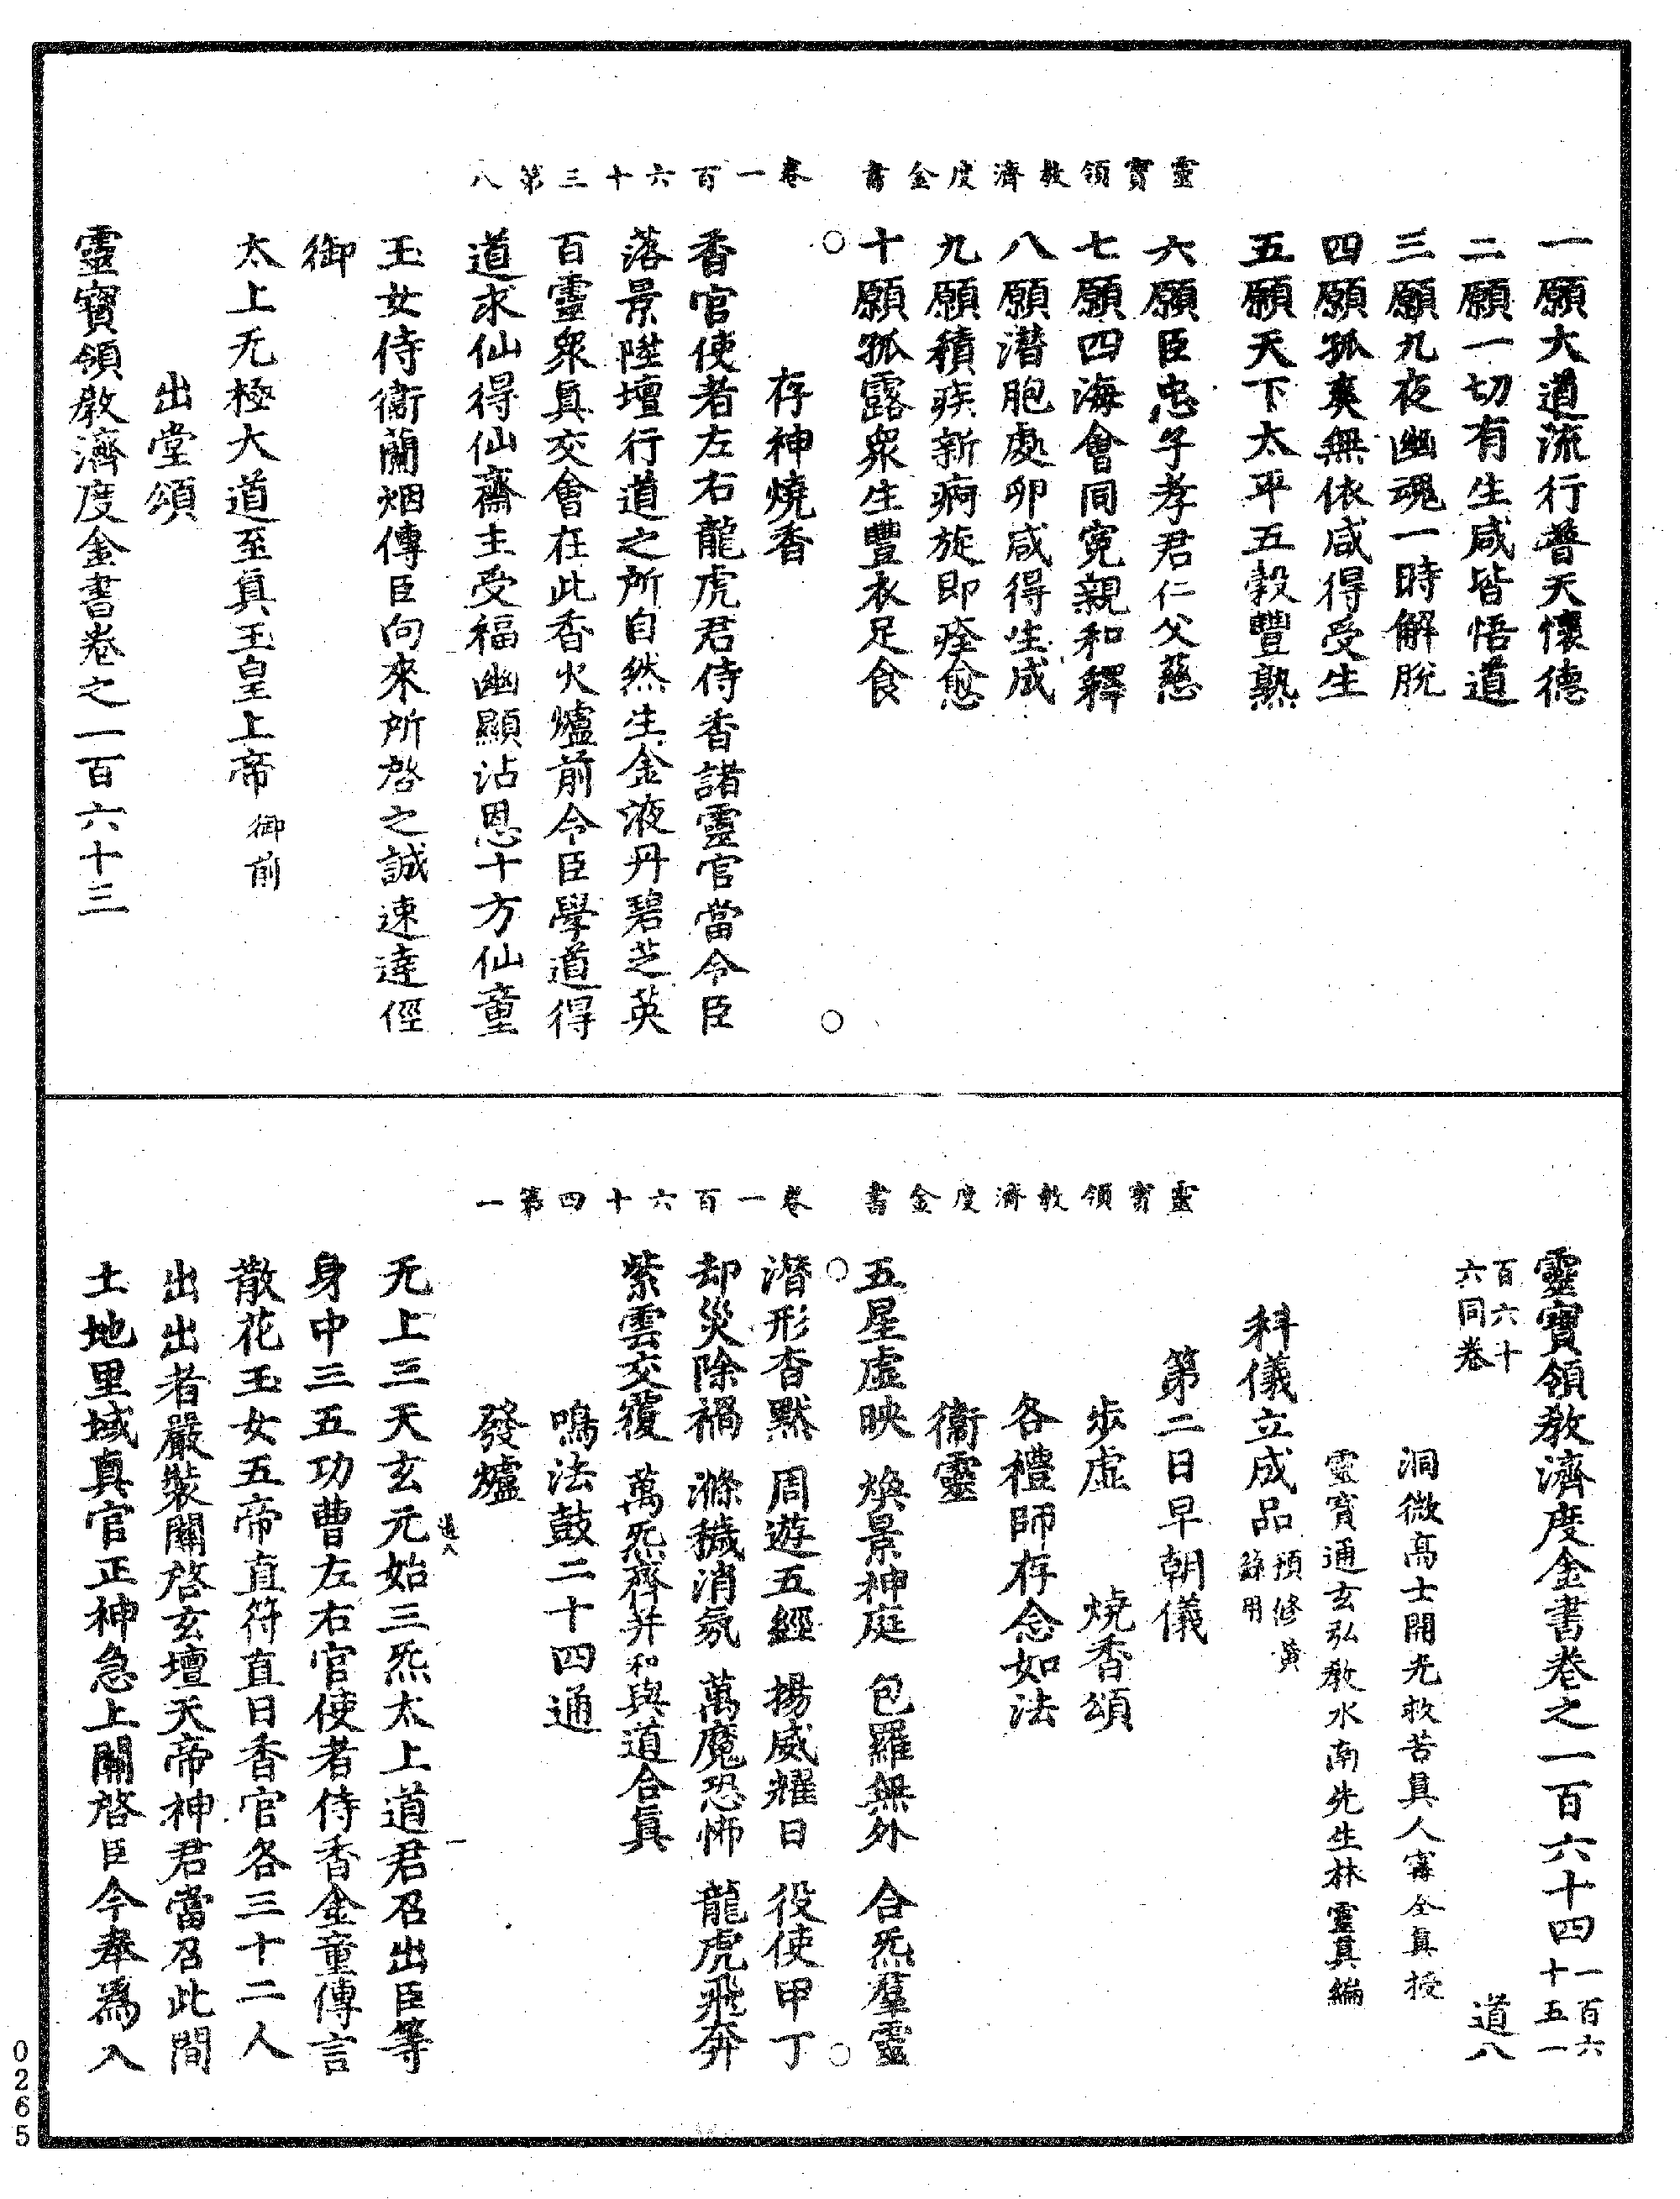 靈寶領教濟度金書　卷一百六十三第八
一願大道流行普天懷德
二願一切有生咸皆悟道
三願九夜幽魂一時解脫
四願孤爽無依咸得受生
五願天下太平五穀豐熟
六願臣忠子孝君仁父慈
七願四海會同寃親和釋
八願潛胞處卵咸得生成
九願積疾新痾旋即痊愈
十願孤露衆生豐衣足食
存神燒香
香官使者左右龍虎君侍香諸靈官當令臣
落景陞壇行道之所自然生金液丹碧芝英
百靈衆真交會在此香火爐前令臣學道得
道求仙得仙齋主受福幽顯沾恩十方仙童
玉女侍衞蘭烟傳臣向來所啓之誠速達徑
御
太上无極大道至真玉皇上帝御前
出堂頌
靈寶領教濟度金書卷之一百六十三
靈寶領教濟度金書　卷一百六十四第一
靈寶領教濟度金書卷之一百六十四一百六十五一
百六十六同卷　道八
洞微高士開光救苦真人甯全真授
靈寶通玄弘教水南先生林靈真編
科儀立成品預修黃籙用
第二日早朝儀
步虛　燒香頌
各禮師存念如法
衞靈
五星虛映　煥景神庭　包羅無外　合炁羣靈
潛形杳默　周遊五經　揚威耀日　役使甲丁
却災除禍　滌穢消氛　萬魔恐怖　龍虎飛奔
紫雲交覆　萬炁齊并和與道合真
鳴法鼓二十四通
發爐
无上三天玄元始三炁太上道君召出臣等
道八　一
身中三五功曹左右官使者侍香金童傳言
散花玉女五帝直符直日香官各三十二人
出出者嚴裝關啓玄壇天帝神君當召此間
土地里域真官正神急上關啓臣今奉爲入
0265